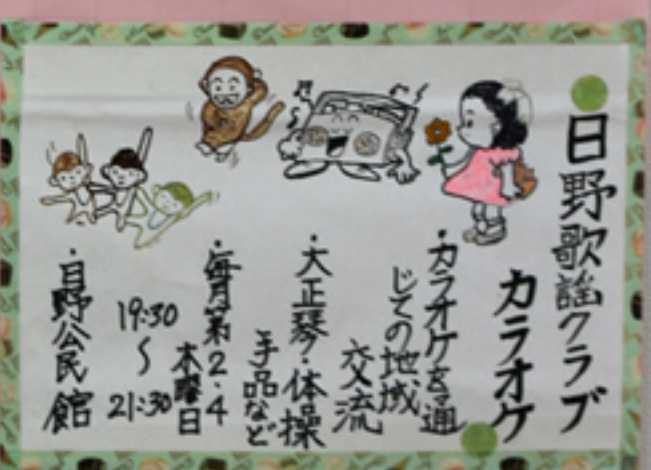 日野歌謡クラブ
カラオケ
・カラオケを通
じての地域
交流
・大正琴・体操
手品など
・毎月第2・4
木曜日
19:30
~
21:30
・日野公民館